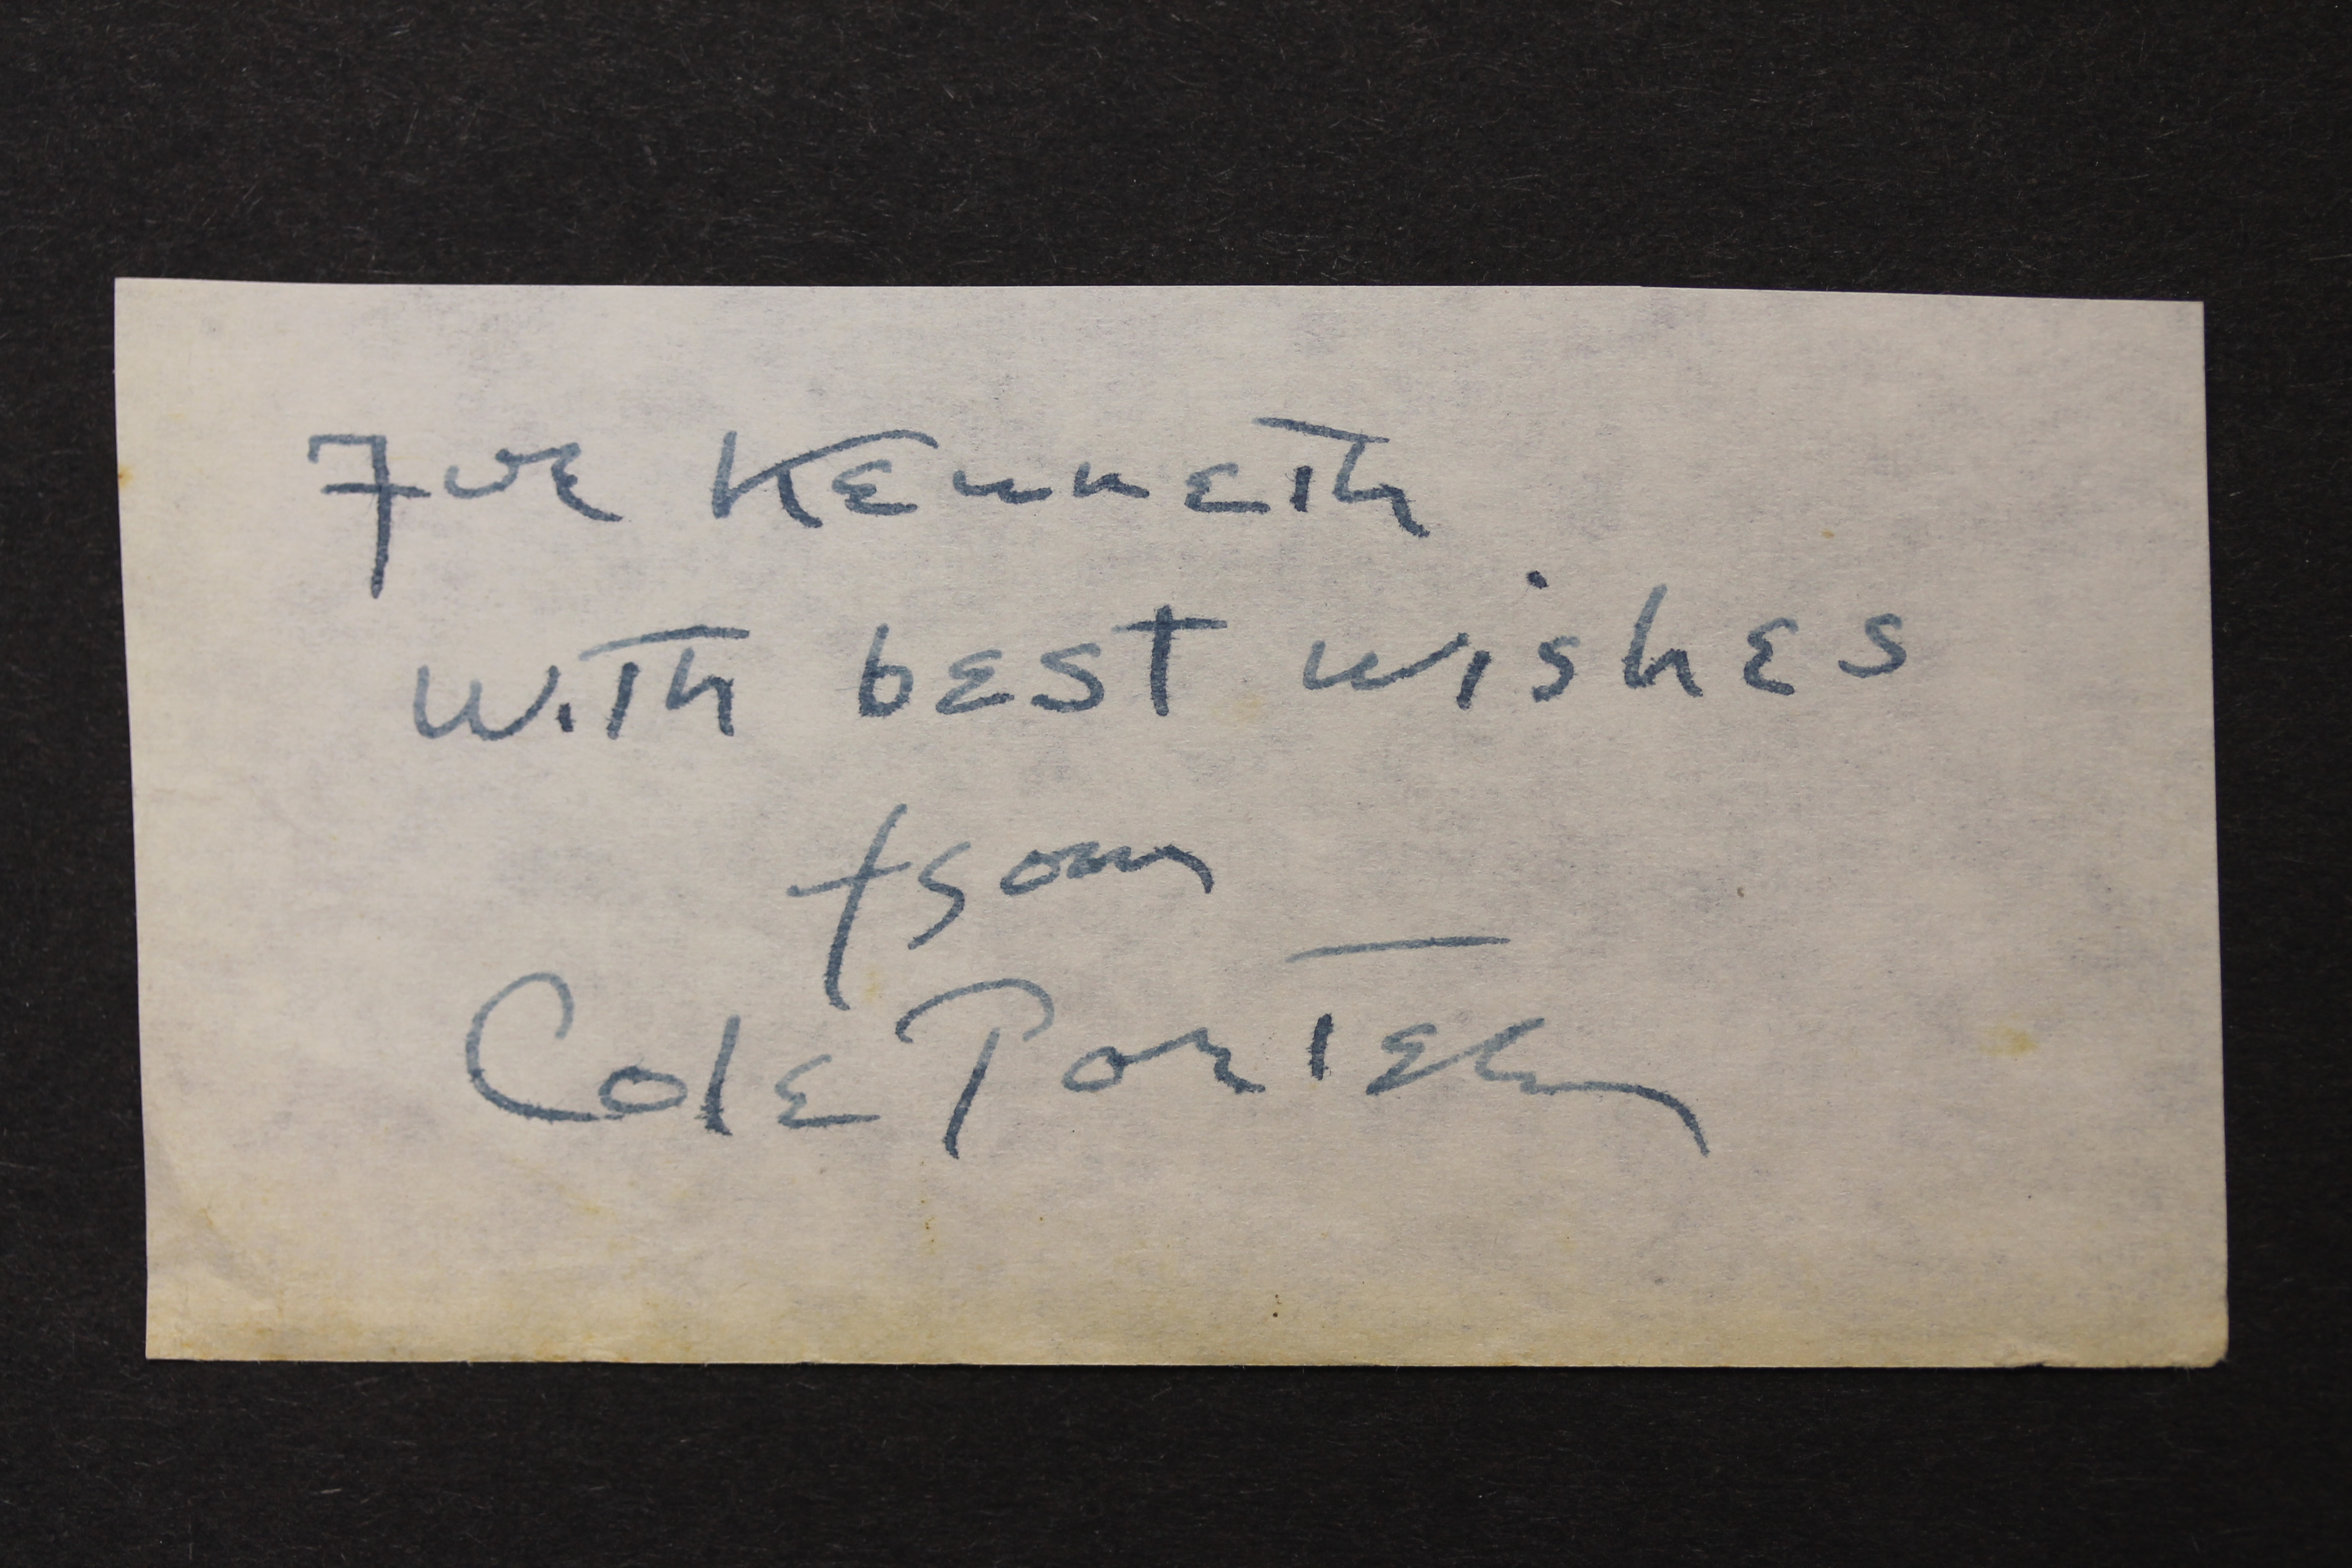 For Kenneth
with best wishes
from
Cole Porter